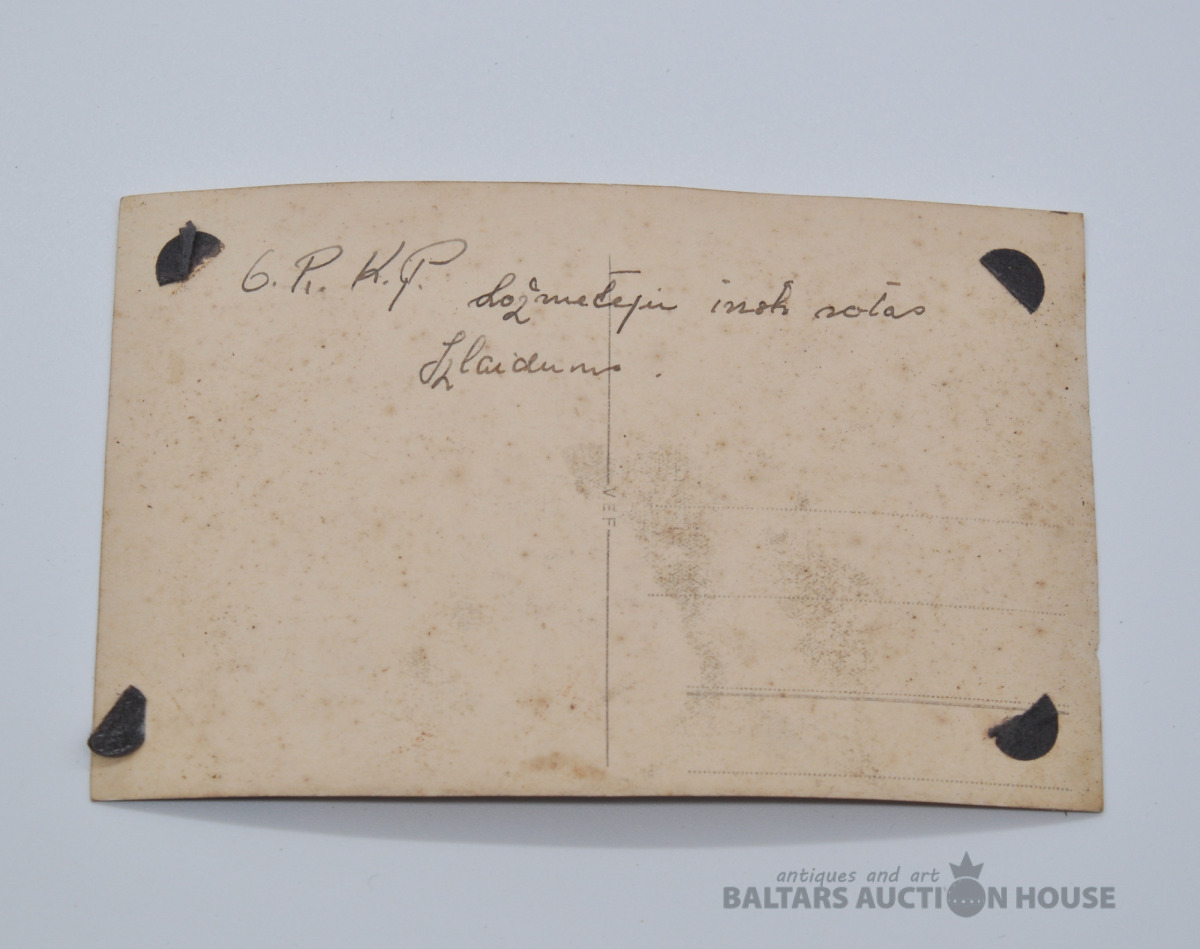 6. R. K. P. Ložmetēju instr. rotas
Izlaidums.
VEF
antiques and art
BALTARS AUCTION HOUSE